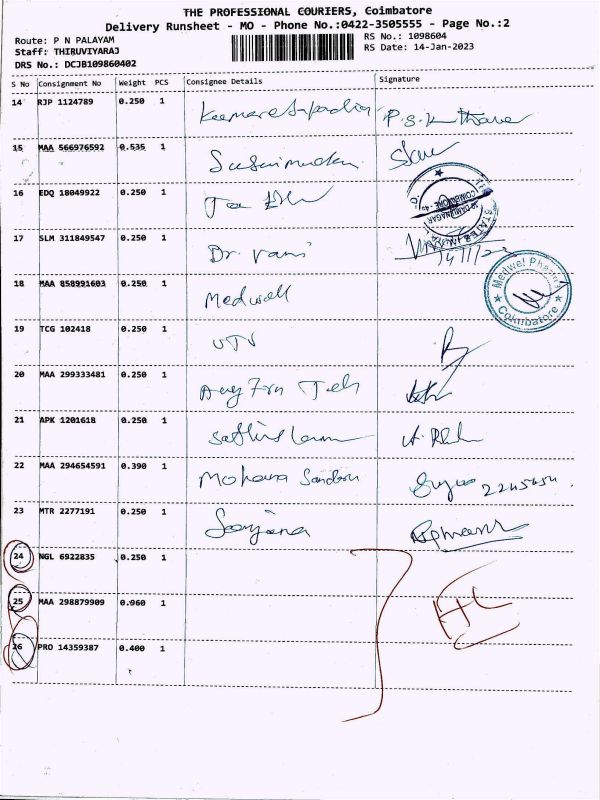 THE PROFESSIONAL COURIERS, Coimbatore
Delivery Runsheet - MO - Phone No.:0422-3505555 - Page No.:2
Route: P N PALAYAM
Staff: THIRUVIYARAJ
DRS No.: DCJB109860402
RS No.: 1098604
RS Date: 14-Jan-2023
S No Consignment No Weight PCS Consignee Details Signature
14 RJP 1124789 0.250 1
15 MAA 566976592 0.535 1
16 EDQ 18049922 0.250 1
17 SLM 311849547 0.250 1 Dr. Vani
18 MAA 858991603 0.250 1 Medwell
Medwel Pharma Coimbatore
19 TCG 102418 0.250 1 UTV
20 MAA 299333481 0.250 1
21 APK 1201618 0.250 1
22 MAA 294654591 0.390 1 Mohana 2245454
23 MTR 2277191 0.250 1 Sanjana
24 NGL 6922835 0.250 1
25 MAA 298879909 0.960 1
26 PRO 14359387 0.400 1